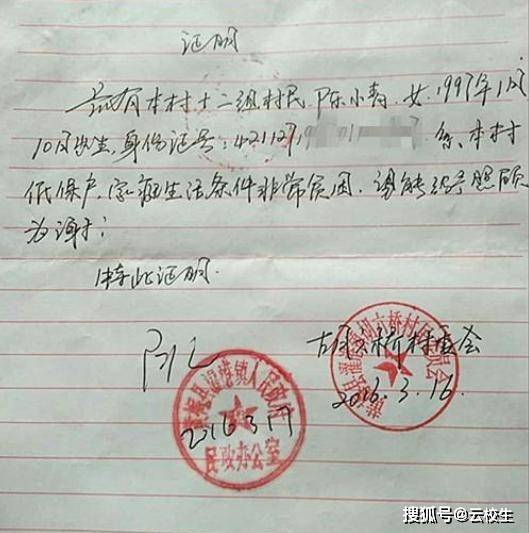 证明
兹有本村十二组村民陈小春,女,1997年1月
10日出生,身份证号:421127,19 01 系本村
低保户,家庭生活条件非常贫困,请能给予照顾
为谢!
特此证明.
村委会
2016.3.16.
黄梅县 镇人民政府
2016.3.17
民政办公室
搜狐号@云校生